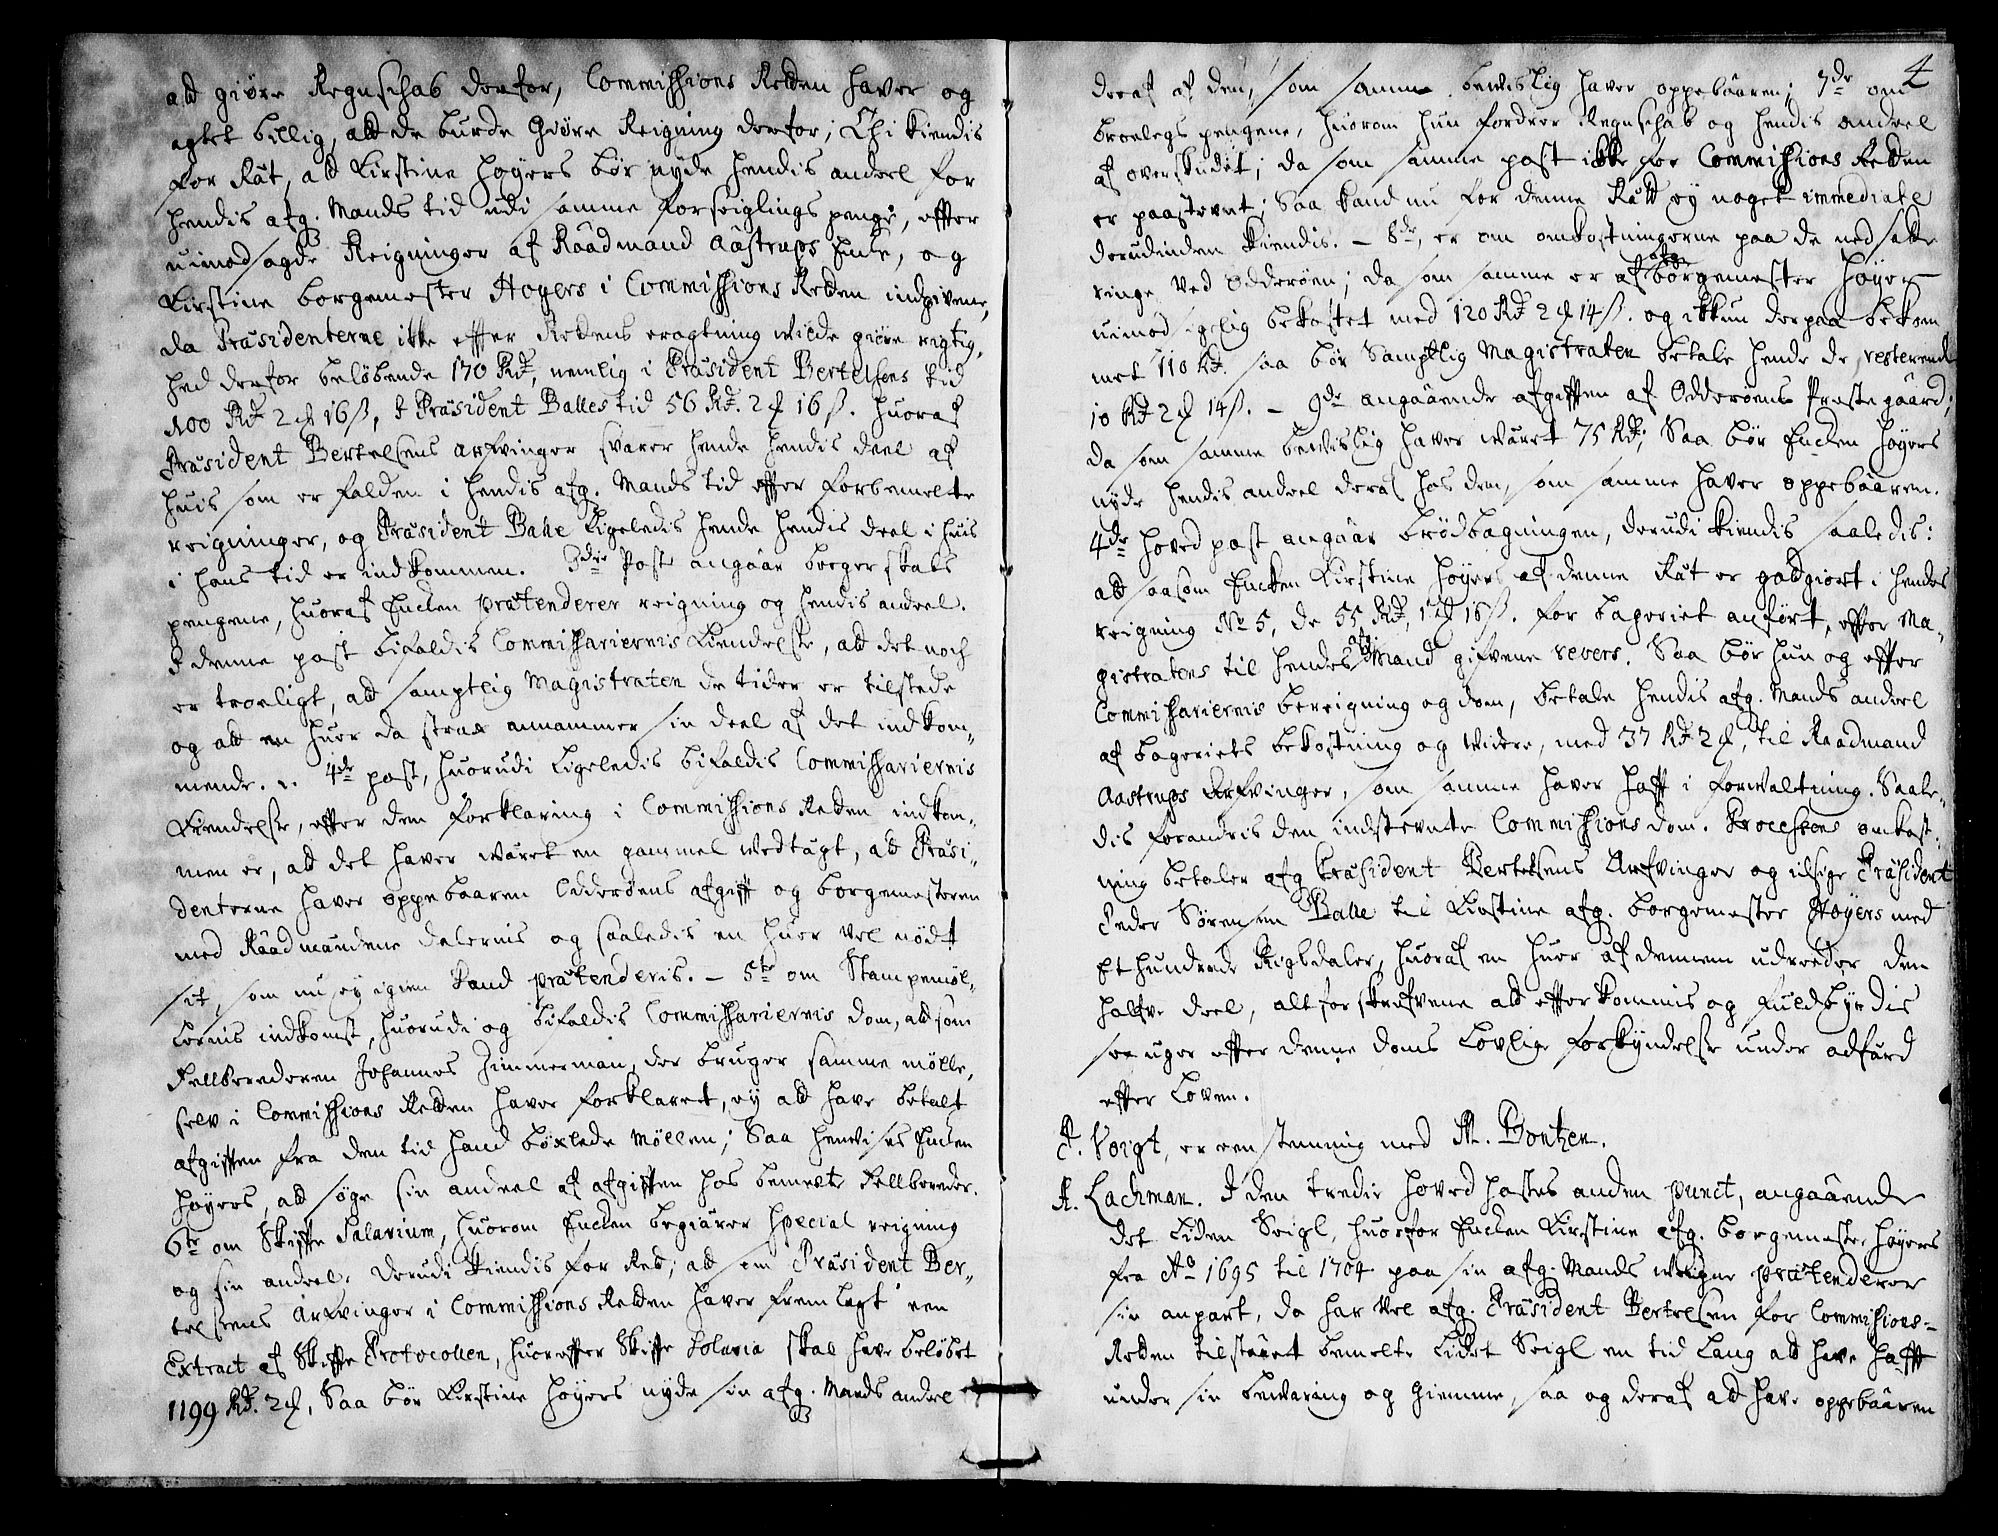 ald giöre Regnschab derfor, Commissions Retten haver og
agtet billig, at de burde giöre Reigning derfor; Thi kiendis
for Rät, ald Kirstine Høyers bør nyde hendis andeel for
hendis afg. Mands tid udi samme forseiglings penge, effter
uimodsagde Reigninger af Raadmand Aastrups Enke, og
Kirstine borgemester Høyers i Commissions Retten indgivene,
da Præsidenterne ikke effter Rettens eragtning wilde giöre rigtig-
hed derfor beløbende 170 Rd, nemlig i Præsident Bertelsens tid
100 Rd 2 ₰ 16 ß, I Præsident Balles tid 56 Rd. 2 ₰ 16 ß. huoraf
Præsident Bertelsens arfvinger svarer hende hendis deel af
huis som er falden i hendis afg. Mands tid effter forbemelte
reigninger, og Præsident Balle ligeledis hende hendis deel i huis
i hans tid er indkommen. 3die Post angaar borgerskabs
pengene, huoraf Encken prætenderer reigning og hendis andeel.
I denne post bifaldis Commissariernis Kiendelse, ald det noch
er troeligt, ald samptlig Magistraten de tider er tilstede
og ald en huer da strax annammer sin deel af det indkom-
mende. 4de post, huorudi ligeledis bifaldis Commissariernis
Kiendelse, effter den forklaring i Commissions Retten indkom-
men er, ald det haver wäret en gammel wedtägt, ald Præsi-
denterne haver oppebaaren Odderöens afgifft og borgemesteren
med Raadmændene delernis og saaledis en huer vel nödt
sit, som nu ey igien kand prætenderis. - 5te om Stampemøl-
lernis indkomst, huorudi og bifaldis Commissariernis dom, ald som
Fellberederen Johannes Zimmerman, der bruger samme mølle,
selv i Commissions Retten haver forklaret, ey ald have betalt
afgifften fra den tid hand böxlede Møllen; Saa henvises Encken
Høyers, ald søge sin andeel af afgifften hos bemelte Fellbereder.
6te om Skiffte Salarium, huorom Encken begiärer special reigning
og sin andeel. derudi kiendis for Ret; ald som Præsident Ber-
telsens Arfvinger i Commissions Retten haver fremlagt een
Extract af Skiffte Protocollen, huoreffter Skiffte Solaria skal have beløbet
1199 Rd. 2 ₰, Saa bør Kirstine Høyers nyde sin afg. Mands andeel
4
deraf af den, som samme bevislig haver oppebaaren; 7de om
broelegs pengene, huorom hun fordrer Regnschab og hendis andeel
af overskudet; da som samme post ikke for Commissions Retten
er paastevnt; Saa kand nu for denne Rätt ey noget immediate
derudinden kiendis. - 8de, er om omkostningerne paa de nedsatte
ringe ved Odderöen; da som samme er af afg. borgemester Høyer
uimodsigelig bekostet med 120 Rd 2 ₰ 14 ß. og ikkun derpaa bekom-
met 110 Rd. saa bør Samptlig Magistraten betale hende de resterende
10 Rd 2 ₰ 14 ß. - 9de angaaende afgifften af Odderöens Præstegaard;
da som samme bevislig haver wäret 75 Rd; Saa bør Encken Høyers
nyde hendis andeel deraf hos dem, som samme haver oppebaaren.
4de hovedpost angaar brödbagningen, derudi kiendis saaledis:
ald saasom Encken Kirstine Høyers af denne Rät er godgiort i hendes
reigning No 5, de 55 Rd, 1 ₰ 16 ß. for bageriet anført, effter Ma-
gistratens til hendes afg. Mand gifvene revers. Saa bør hun og effter
Commissariernis bereigning og dom, betale hendis afg. Mands andeel
af bageriets bekostning og videre, med 37 Rd 2 ₰, til Raadmand
Aastrups Arfvinger, som samme haver hafft i forwaltning. Saale-
dis forandris den indstevnte Commissions dom. Processens omkost-
ning betaler afg Præsident Bertelsens Arfvinger og ilsige Præsident
Peder Sørensen Balle til Kirstine afg. borgemester Høyers med
Et hundrede Rigsdaler, huoraf en huer af dennem udreeder den
halfve deel, alt forskrefvene ald effterkommis og fuldbyrdis
sex uger effter denne doms Lovlige forkyndelse under adfärd
effter Loven.
F. Voigt, er eenstemmig med M. Bontzen.
A. Lachman. I den tredie hovedpostes anden punct, angaaende
det liden Seigl, huorfor Encken Kirstine afg. borgemester Høyers
fra Ao 1695 til 1704 paa sin afg. Mands weigne prætenderer
sin anpart, da har vel afg. Præsident Bertelsen for Commissions-
Retten tilstaaet bemelte lidet Seigl en tid lang ald have hafft
under sin bevaring og giemme, saa og deraf ald have oppebaaren